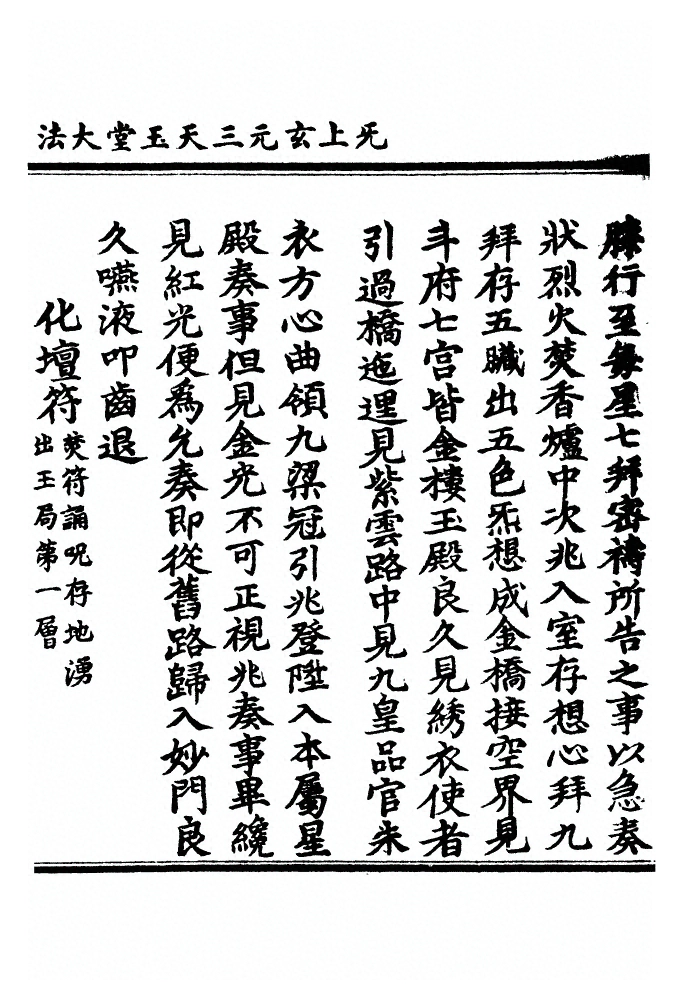 法大堂玉天三元玄上旡
膝行至每星七拜密禱所告之事以急奏
狀烈火焚香爐中次兆入室存想心拜九
拜存五臟出五色炁想成金橋接空界見
斗府七宮皆金樓玉殿良久見綉衣使者
引過橋迤邐見紫雲路中見九皇品官朱
衣方心曲領九梁冠引兆登陞入本屬星
殿奏事但見金光不可正視兆奏事畢纔
見紅光便爲允奏即從舊路歸入妙門良
久嚥液叩齒退
化壇符
焚符誦呪存地湧
出玉局第一層